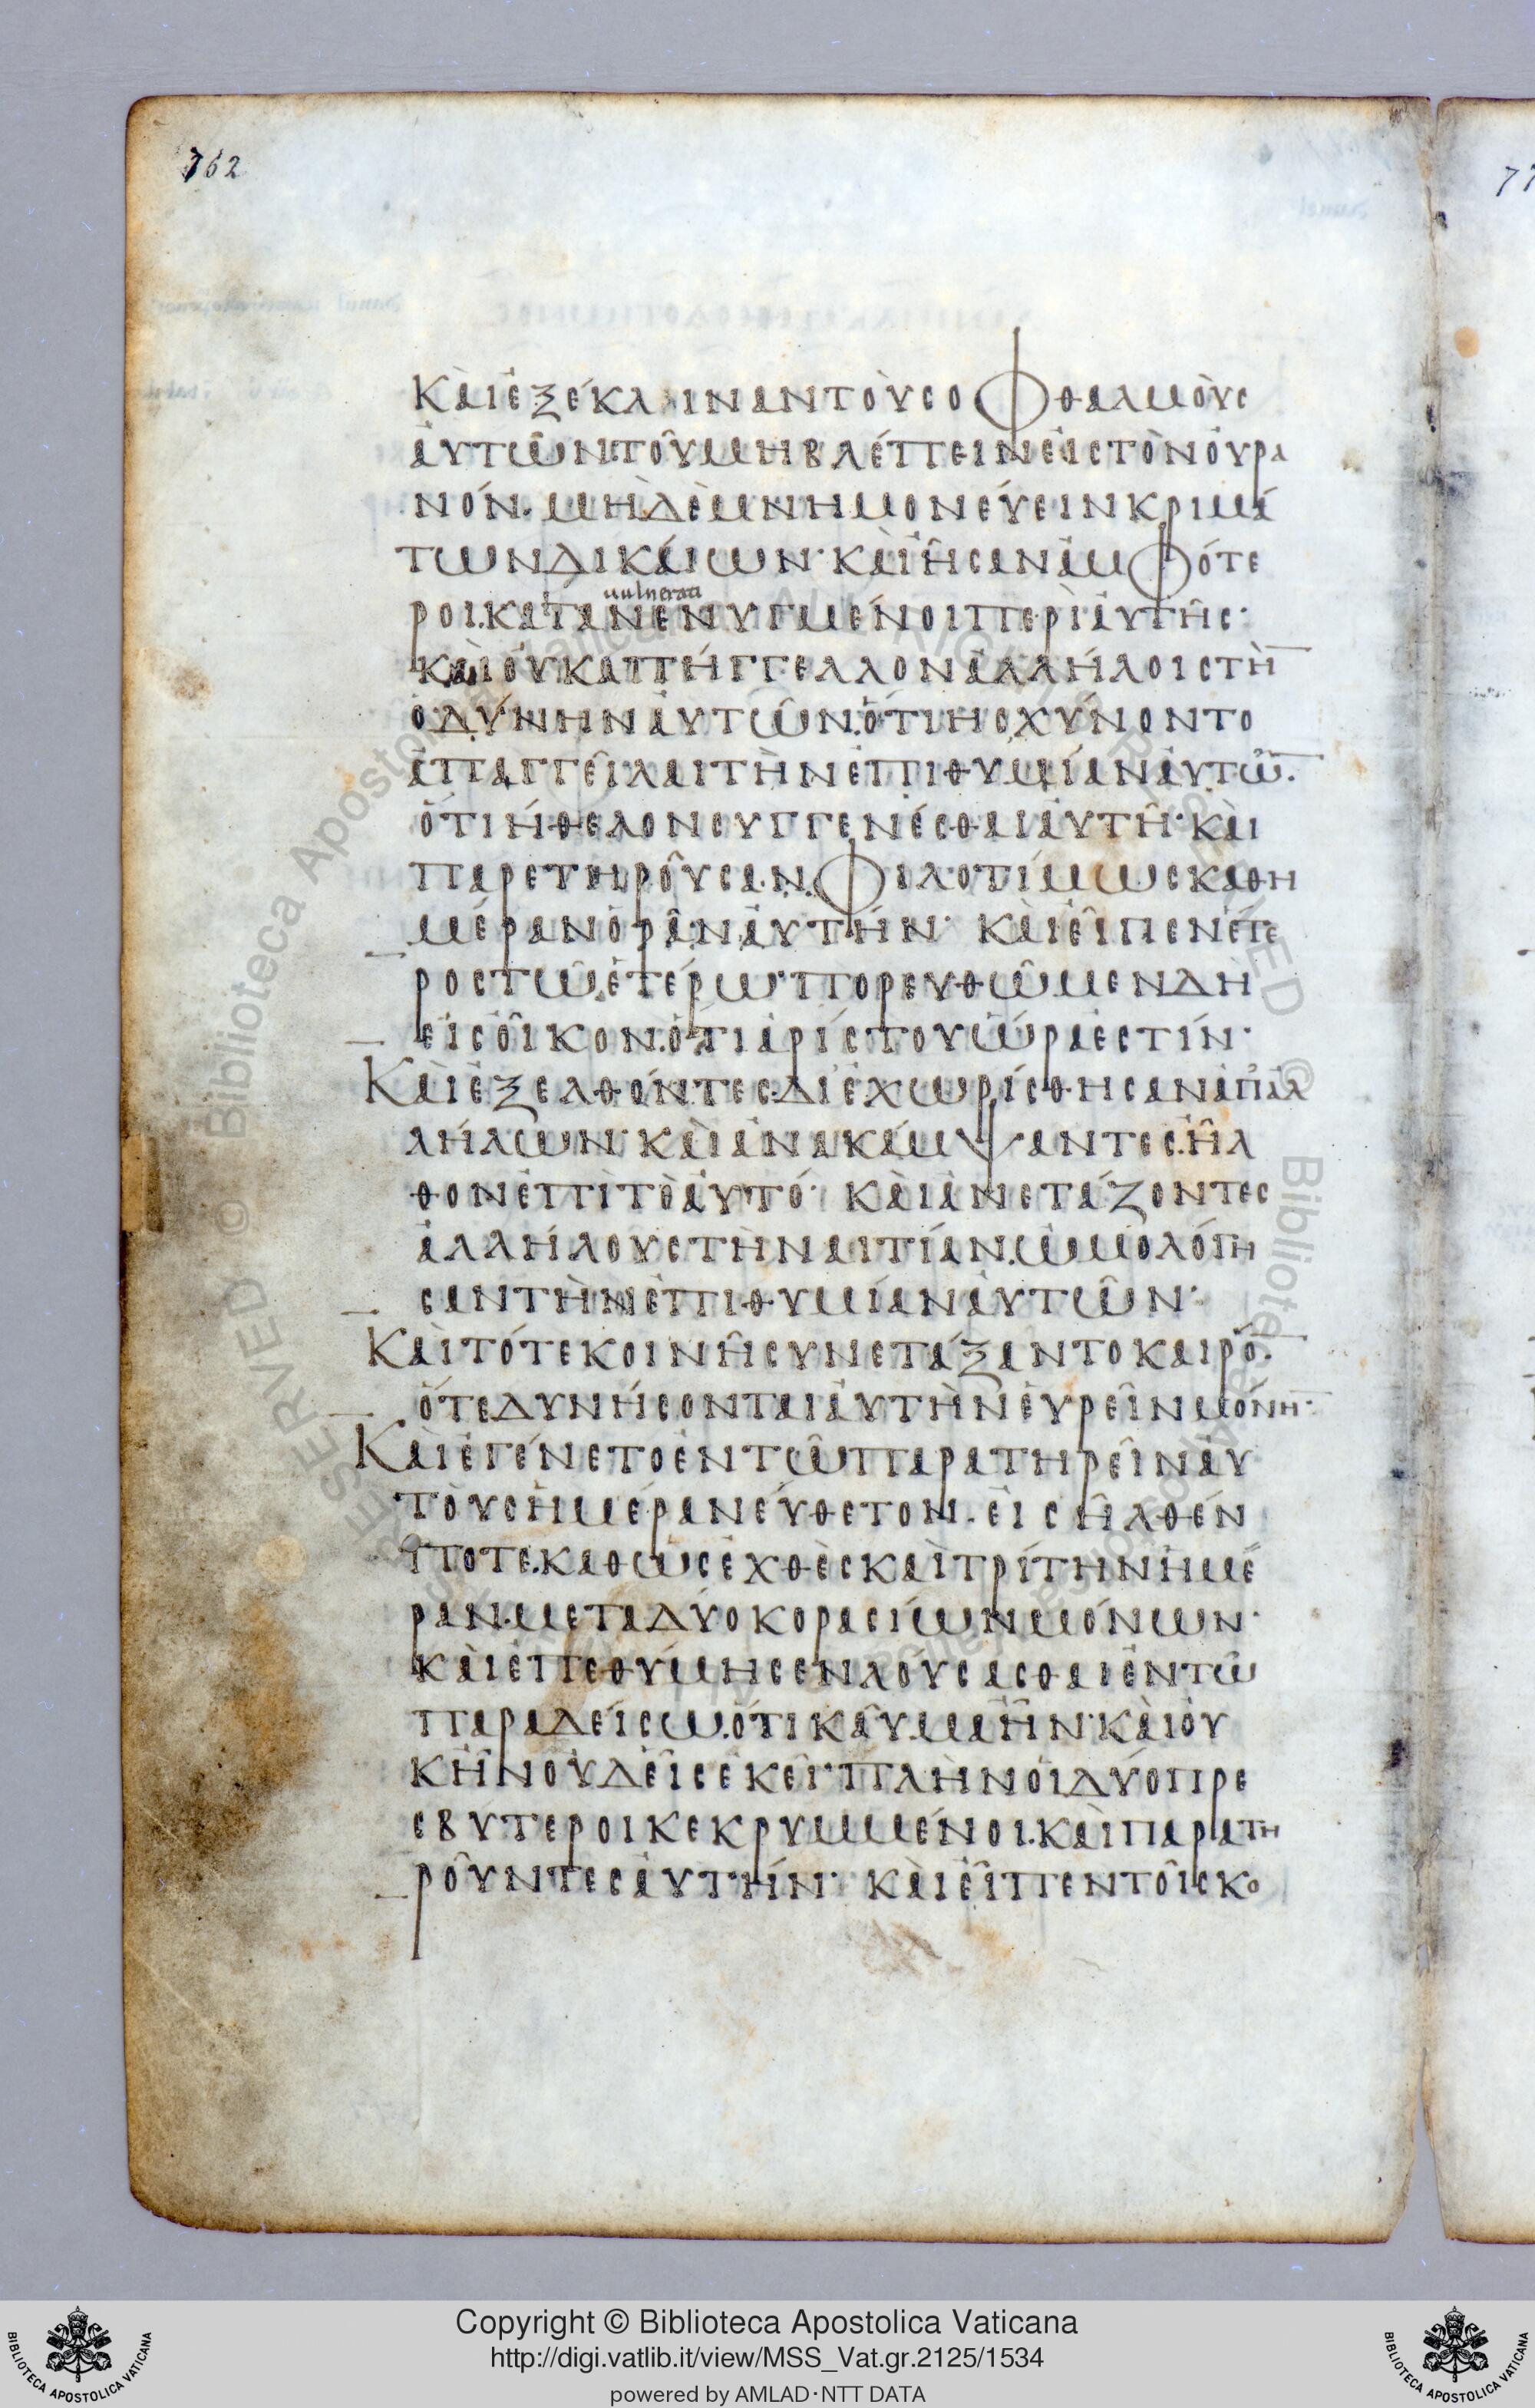 762
77
ΚΑὶἐΞέΚΛΙΝΑΝΤΟὺϹΟΦΘΑΛΜΟὺϹ
ἀΥΤῶΝ.ΤΟῦΜΗΒΛέΠΕΙΝἐΙϹΤὸΝΟὐΡΑ
ΝόΝ. ΜΗΔὲΜΝΗΜΟΝεύΕΙΝΚΡΙΜά
ΤωΝΔΙΚΑίωΝ· ΚΑὶἦϹΑΝἀΜΦόΤΕ
uulnerati
ΡΟΙ.ΚΑΤΑΝΕΝΥΓΜέΝΟΙΠΕΡὶἀΥΤῆϹ·
ΚΑὶΟὐΚΑΠήΓΓΕΛΛΟΝἀΛΛήΛΟΙϹΤὴ̅
ὀΔύΝΗΝἀΥΤῶΝ.ὅΤΙΗϹΧύΝΟΝΤΟ
ἀΠΑΓΓΕῖΛΑΙΤὴΝἐΠΙΘΥΜίΑΝἀΥΤῶ̅.
ὅΤΙἤΘΕΛΟΝϹΥΓΓΕΝέϹΘΑΙἀΥΤῆ· ΚΑὶ
ΠΑΡΕΤΗΡΟῦϹΑΝ.ΦΙΛΟΤίΜωϹΚΑΘΗ
ΜέΡΑΝὁΡᾶΝἀΥΤήΝ· ΚΑὶἐῖΠΕΝἕΤΕ
ΡΟϹΤῶἑΤέΡω· ΠΟΡΕΥΘῶΜΕΝΔὴ
ΕἰϹΟἶΚΟΝ.ὅΤΙἀΡίϹΤΟΥὥΡΑἐϹΤίΝ·
ΚΑὶἐΞΕΛΘόΝΤΕϹΔΙΕΧωΡίϹΘΗϹΑΝἀΠἀΛ
ΛήΛωΝ· ΚΑὶἀΝΑΚάΜΨΑΝΤΕϹ.ἦΛ
ΘΟΝἐΠὶΤὸἀΥΤό· ΚΑὶἀΝΕΤάΖΟΝΤΕϹ
ἀΛΛήΛΟΥϹΤὴΝΑΙΤίΑΝ.ὡΜΟΛόΓΗ
ϹΑΝΤὴΝἐΠΙΘΥΜίΑΝἀΥΤῶΝ·
ΚΑὶΤόΤΕΚΟΙΝῆϹΥΝΕΤάΞΑΝΤΟΚΑΙΡό̅.
ὅΤΕΔΥΝήϹΟΝΤΑΙἀΥΤὴΝἐΥΡΕῖΝΜόΝΗ̅·
ΚΑὶἐΓέΝΕΤΟἐΝΤῶΠΑΡΑΤΗΡΕῖΝἀΥ
ΤΟὺϹἡΜέΡΑΝΕύΘΕΤΟΝ. ἐΙϹῆΛΘέΝ
ΠΟΤΕ.ΚΑΘωϹἐΧΘὲϹΚΑὶΤΡίΤΗΝἡΜέ
ΡΑΝ.ΜΕΤΑΔύΟΚΟΡΑϹίωΝΜόΝωΝ·
ΚΑὶἐΠΕΘύΜΗϹΕΝΛΟύϹΑϹΘΑΙἐΝΤῶ
ΠΑΡΑΔΕίϹω.ὅΤΙΚΑῦΜΑἦΝ· ΚΑὶΟὐ
ΚἦΝΟὐΔΕὶϹἐΚΕῖ· ΠΛὴΝΟἱΔύΟΠΡΕ
ϹΒΥΤΕΡΟΙΚΕΚΡΥΜΜέΝΟΙ.ΚΑὶΠΑΡΑΤΗ
ΡΟῦΝΤΕϹἀΥΤήΝ· ΚΑὶἐῖΠΕΝΤΟῖϹΚΟ
Copyright © Biblioteca Apostolica Vaticana
http://digi.vatlib.it/view/MSS_Vat.gr.2125/1534
powered by AMLAD·NTT DATA
BIBLIOTECA APOSTOLICA VATICANA
BIBLIOTECA APOSTOLICA VATICANA